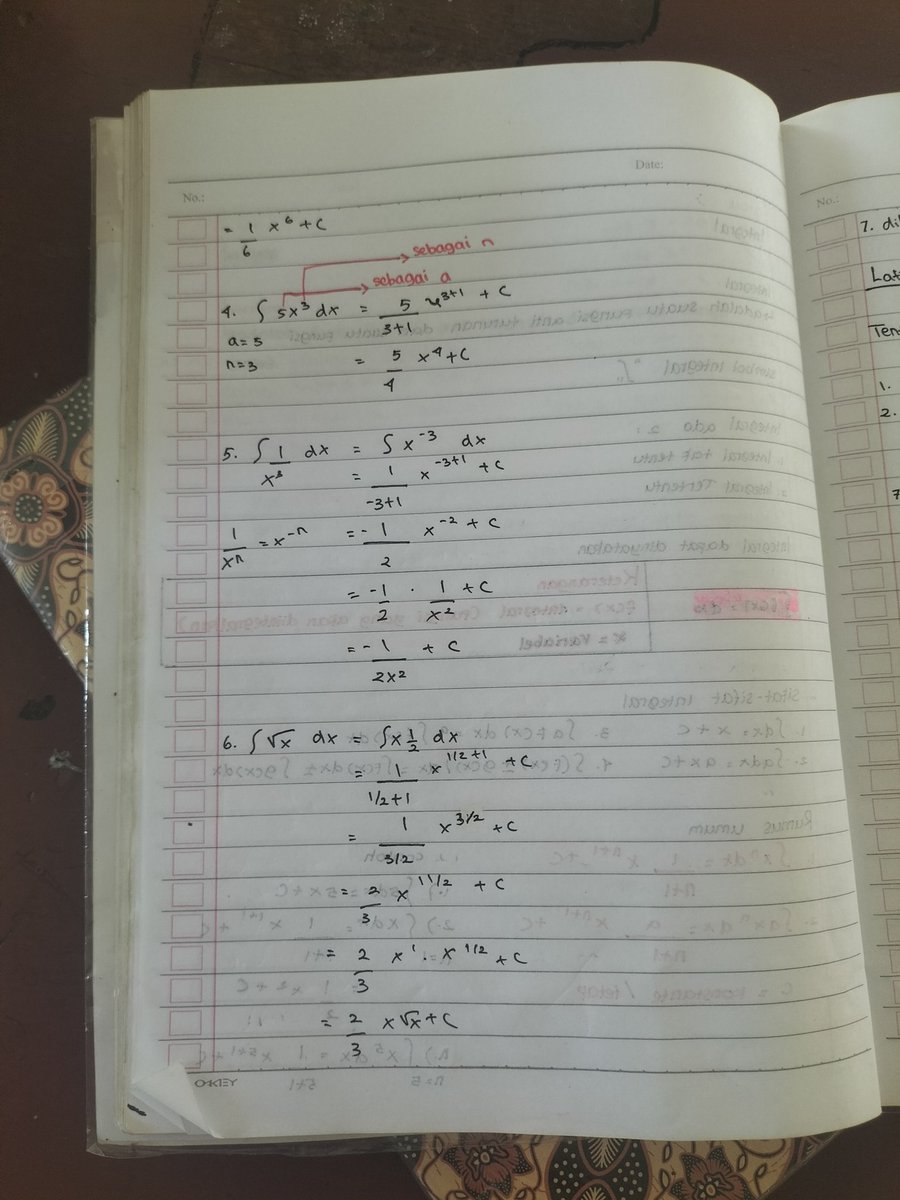 No.:
Date:
= 1/6 x⁶ + C
sebagai n
sebagai a
4. ∫ 5x³ dx = 5/(3+1) x³⁺¹ + C
a = 5
n = 3
= 5/4 x⁴ + C
5. ∫ 1/x³ dx = ∫ x⁻³ dx
= 1/(-3+1) x⁻³⁺¹ + C
1/xⁿ = x⁻ⁿ
= - 1/2 x⁻² + C
= -1/2 . 1/x² + C
= - 1/2x² + C
6. ∫ √x dx = ∫ x 1/2 dx
= 1/(1/2+1) x^(1/2+1) + C
= 1/(3/2) x^(3/2) + C
= 2/3 x^(1 1/2) + C
= 2/3 x¹ . x^(1/2) + C
= 2/3 x√x + C
O-KEY
No.:
7.
1.
2.